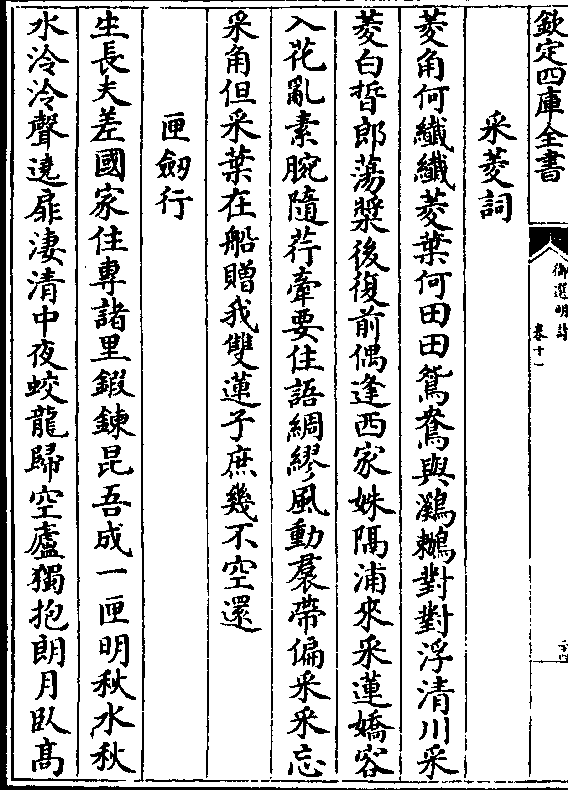 欽定四庫全書
御選明詩
卷十一
采菱詞
菱角何纖纖菱葉何田田鴛鴦與鸂鶒對對浮清川采
菱白皙郎蕩槳後復前偶逢西家姝隔浦來采蓮嬌容
入花亂素腕隨荇牽要住語綢繆風動羣帶偏采采忘
采角但采葉在船贈我雙蓮子庶幾不空還
匣劒行
生長夫差國家住專諸里鍜鍊昆吾成一匣明秋水秋
水泠泠聲遶扉淒清中夜蛟龍歸空廬獨抱朗月臥髙